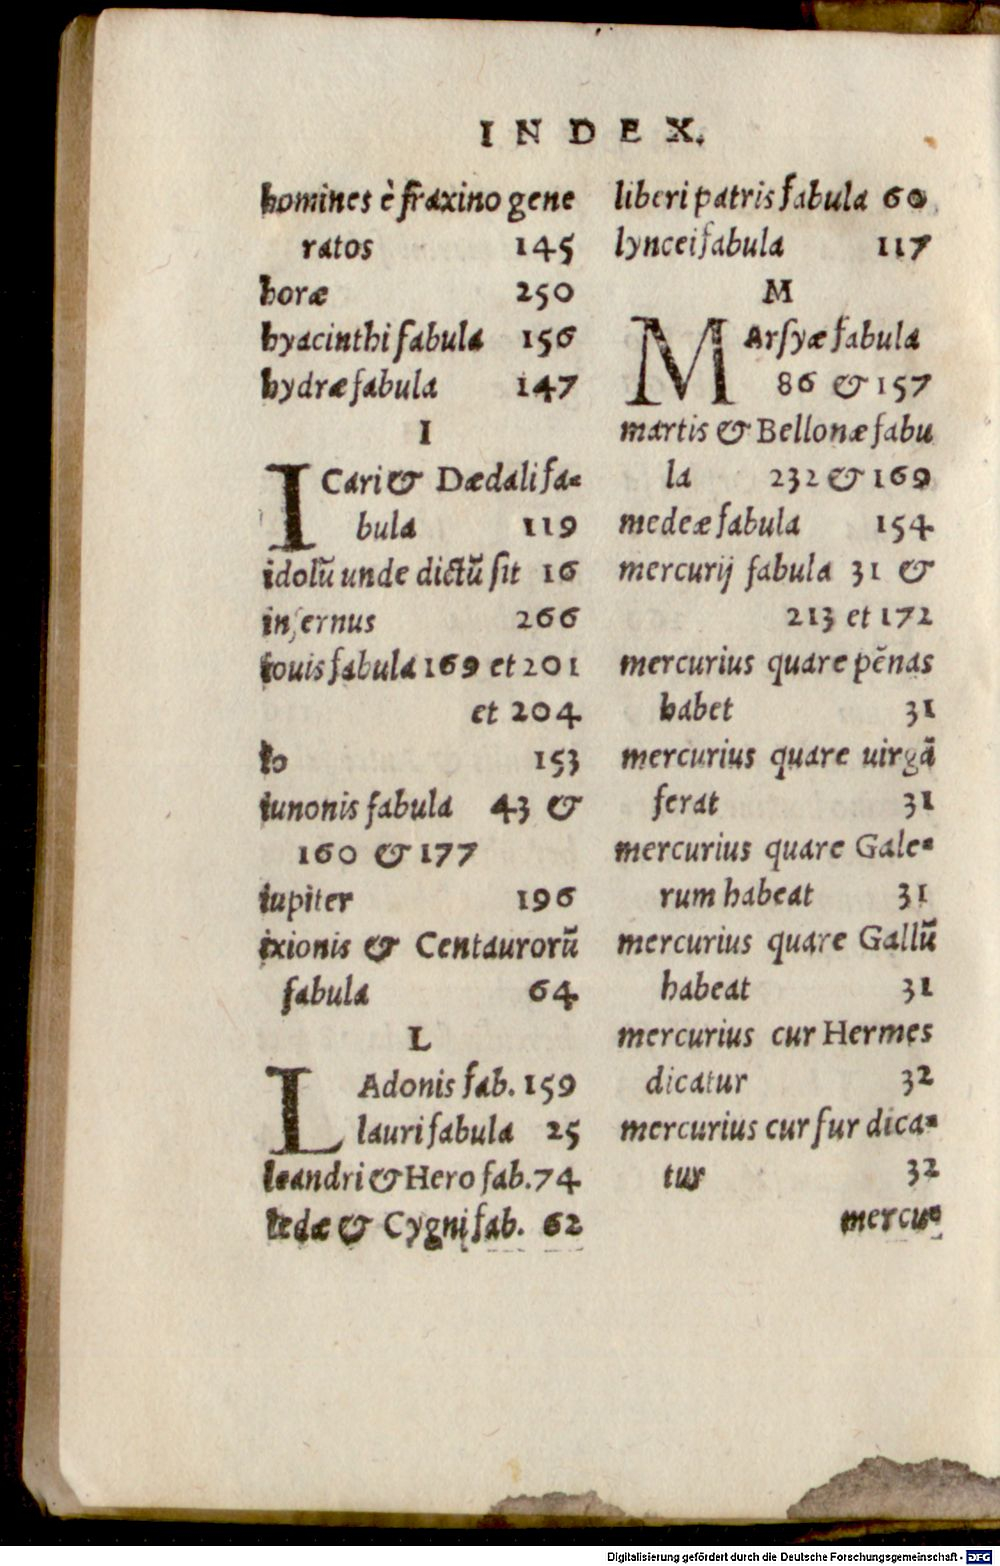 INDEX.
homines è fraxino gene
ratos 145
horæ 250
hyacinthi fabula 156
hydræ fabula 147
I
ICari & Dædali fa-
bula 119
idolũ unde dictũ sit 16
infernus 266
iouis fabula 169 et 201
et 204
io 153
iunonis fabula 43 &
160 & 177
iupiter 196
ixionis & Centaurorũ
fabula 64
L
LAdonis fab. 159
lauri fabula 25
leandri & Hero fab. 74
ledæ & Cygni fab. 62
liberi patris fabula 60
lyncei fabula 117
M
MArsyæ fabula
86 & 157
martis & Bellonæ fabu
la 232 & 169
medeæ fabula 154
mercurij fabula 31 &
213 et 172
mercurius quare pẽnas
habet 31
mercurius quare uirgã
ferat 31
mercurius quare Gale-
rum habeat 31
mercurius quare Gallũ
habeat 31
mercurius cur Hermes
dicatur 32
mercurius cur fur dica-
tur 32
mercu-
Digitalisierung gefördert durch die Deutsche Forschungsgemeinschaft - DFG